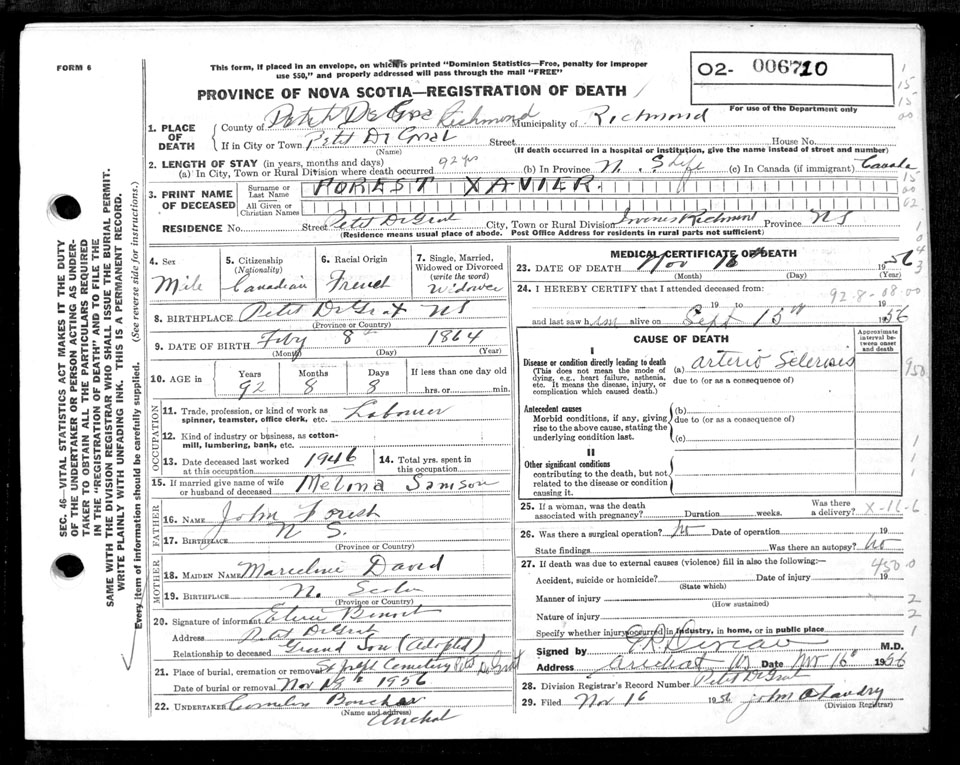 FORM 6
This form, if placed in an envelope, on which is printed "Dominion Statistics—Free, penalty for improper
use $50," and properly addressed will pass through the mail "FREE"
O2- 006710
For use of the Department only
PROVINCE OF NOVA SCOTIA—REGISTRATION OF DEATH
1. PLACE OF DEATH
County of Petit De Grae Richmond Municipality of Richmond
If in City or Town Petit De Grat Street House No.
(Name) (If death occurred in a hospital or institution, give the name instead of street and number)
2. LENGTH OF STAY (in years, months and days)
(a) In City, Town or Rural Division where death occurred 92 yrs (b) In Province N.S. Life (c) In Canada (if immigrant) Canada
3. PRINT NAME OF DECEASED
Surname or Last Name FOREST XAVIER.
All Given or Christian Names
RESIDENCE No. Street Petit DeGrat City, Town or Rural Division Richmont Province NS
(Residence means usual place of abode. Post Office Address for residents in rural parts not sufficient)
SEC. 46—VITAL STATISTICS ACT MAKES IT THE DUTY
OF THE UNDERTAKER OR PERSON ACTING AS UNDER-
TAKER TO OBTAIN ALL THE PARTICULARS REQUIRED
IN THE "REGISTRATION OF DEATH" AND TO FILE THE
SAME WITH THE DIVISION REGISTRAR WHO SHALL ISSUE THE BURIAL PERMIT.
WRITE PLAINLY WITH UNFADING INK. THIS IS A PERMANENT RECORD.
Every item of information should be carefully supplied. (See reverse side for instructions.)
4. Sex
Mile
5. Citizenship (Nationality)
Canadian
6. Racial Origin
French
7. Single, Married, Widowed or Divorced (write the word)
Widower
8. BIRTHPLACE Petit DeGrat NS
(Province or Country)
9. DATE OF BIRTH Feby 8th 1864
(Month) (Day) (Year)
10. AGE in Years Months Days If less than one day old
92 8 8 hrs. or min.
OCCUPATION
11. Trade, profession, or kind of work as
spinner, teamster, office clerk, etc. Labourer
12. Kind of industry or business, as cotton-
mill, lumbering, bank, etc.
13. Date deceased last worked
at this occupation 1946
14. Total yrs. spent in this occupation
15. If married give name of wife
or husband of deceased Melina Samson
FATHER
16. NAME John Forest
17. BIRTHPLACE N S.
(Province or Country)
MOTHER
18. MAIDEN NAME Marceline David
19. BIRTHPLACE N. Scotia
(Province or Country)
20. Signature of informant Benoit
Address Petit DeGrat
Relationship to deceased Grand Son (Adopted)
21. Place of burial, cremation or removal St Joseph Cemetery Petit De Grat
Date of burial or removal Nov 19th 1956
22. UNDERTAKER Boucher
(Name and address)
Arichat
MEDICAL CERTIFICATE OF DEATH
23. DATE OF DEATH Nov 16th 1956
(Month) (Day) (Year)
24. I HEREBY CERTIFY that I attended deceased from:
92-8-08.00
19 to
and last saw him alive on Sept 15th 1956
CAUSE OF DEATH
Approximate interval between onset and death
I
Disease or condition directly leading to death
(This does not mean the mode of
dying, e.g., heart failure, asthenia,
etc. It means the disease, injury, or
complication which caused death.)
(a) arterio Sclerosis
due to (or as a consequence of)
Antecedent causes
Morbid conditions, if any, giving
rise to the above cause, stating the
underlying condition last.
(b)
due to (or as a consequence of)
(c)
II
Other significant conditions
contributing to the death, but not
related to the disease or condition
causing it.
25. If a woman, was the death
associated with pregnancy? Duration weeks. Was there a delivery? X-16-6
26. Was there a surgical operation? No Date of operation 19
State findings Was there an autopsy? No
27. If death was due to external causes (violence) fill in also the following:—
450.0
Accident, suicide or homicide? Date of injury 19
(State which)
Manner of injury
(How sustained)
Nature of injury
Specify whether injury occurred in industry, in home, or in public place
Signed by M.D.
Address Arichat NS Date Nov 16th 1956
28. Division Registrar's Record Number Petit DeGrat
29. Filed Nov 16 1956
(Division Registrar)